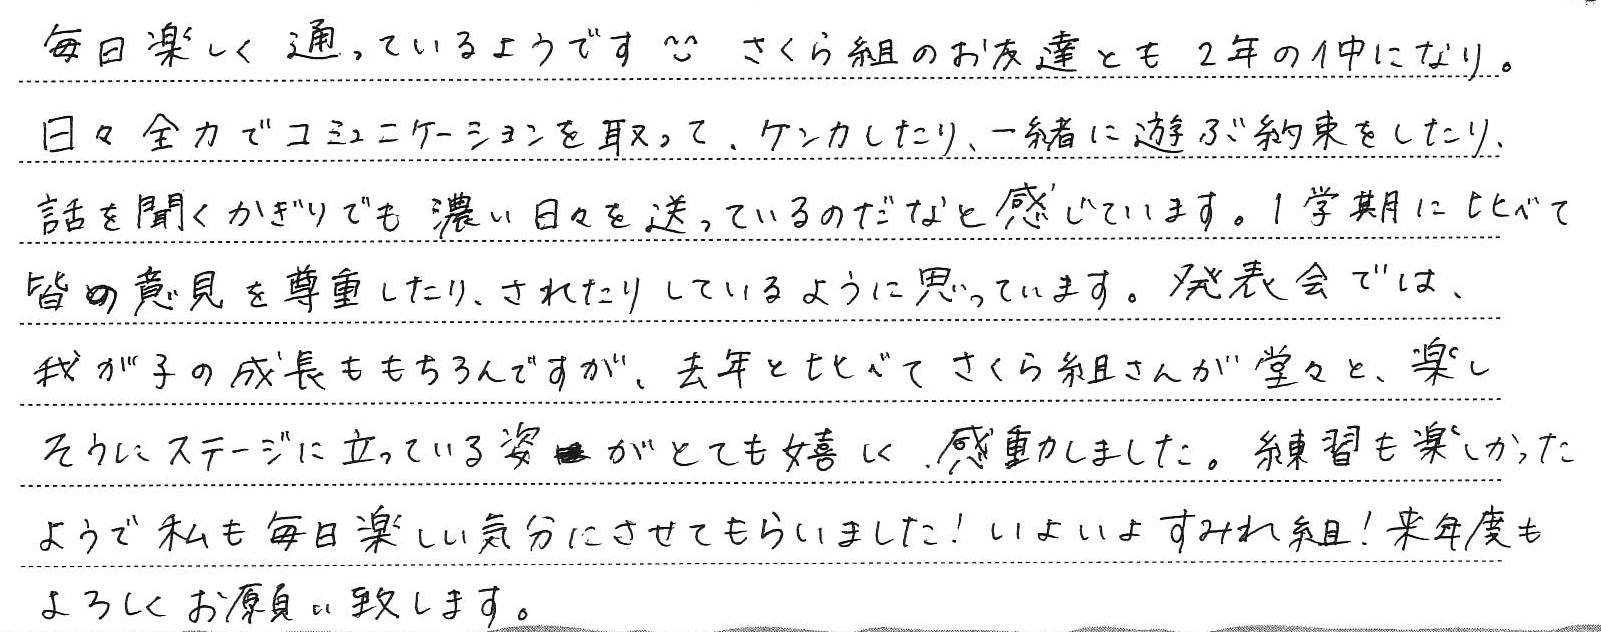 毎日楽しく通っているようです ^^ さくら組のお友達とも2年の仲になり。
日々全力でコミュニケーションを取って、ケンカしたり、一緒に遊ぶ約束をしたり、
話を聞くかぎりでも濃い日々を送っているのだなと感じています。1学期に比べて
皆の意見を尊重したり、されたりしているように思っています。発表会では、
我が子の成長ももちろんですが、去年と比べてさくら組さんが堂々と、楽し
そうにステージに立っている姿がとても嬉しく、感動しました。練習も楽しかった
ようで私も毎日楽しい気分にさせてもらいました!いよいよすみれ組!来年度も
よろしくお願い致します。